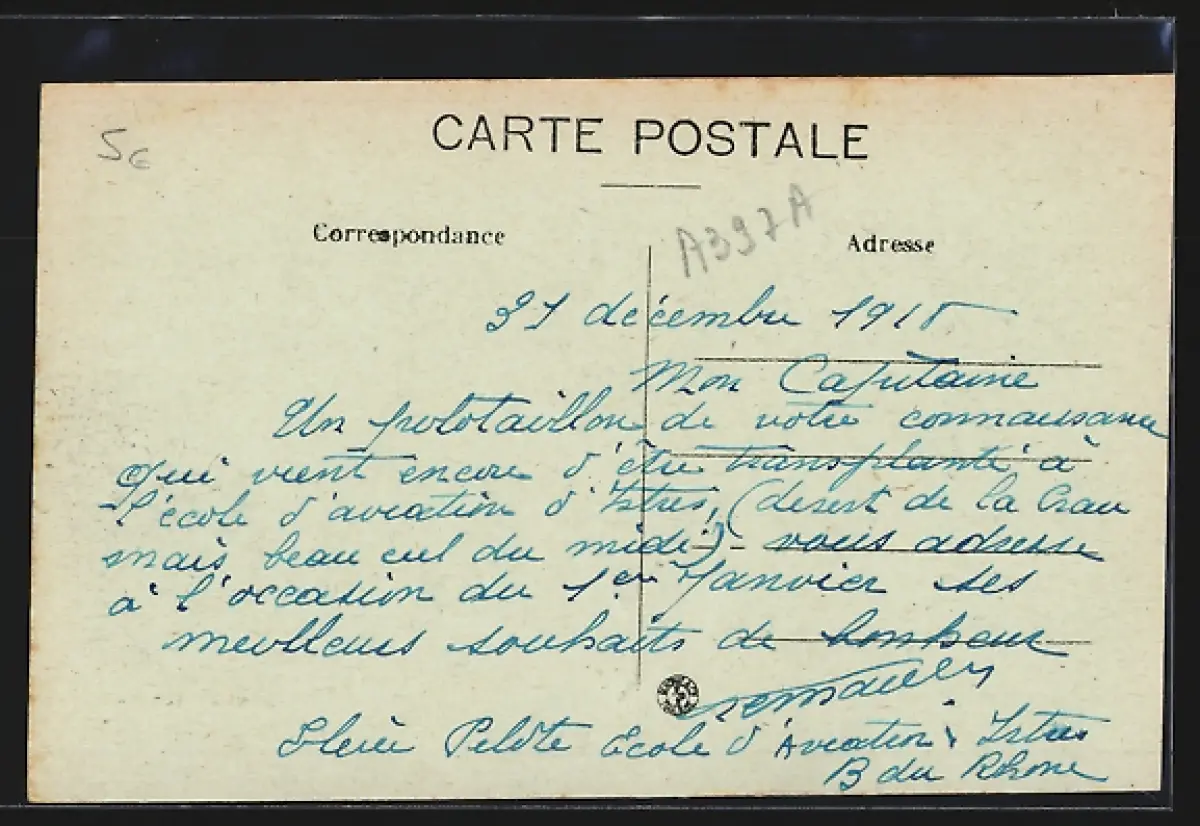 CARTE POSTALE
5€
A397A
Correspondance
Adresse
31 décembre 191
Mon Capitaine
Un pilotaillon de votre connaissance
qui vient encore d'être transplanté à
l'école d'aviation d'Istres, (desert de la Crau
mais beau ciel du midi) - vous adresse
à l'occasion du 1er Janvier ses
meilleurs souhaits de bonheur
Elève Pilote Ecole d'Aviation Istres
B du Rhone